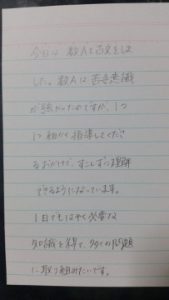 今日は数Aと古文をしま
した。数Aは苦手意識
が強かったのですが、1つ
1つ細かく指導してくださ
るおかげで、すこしずつ理解
できるようになっています。
1日でもはやく必要な
知識を得て、多くの問題
に取り組みたいです。